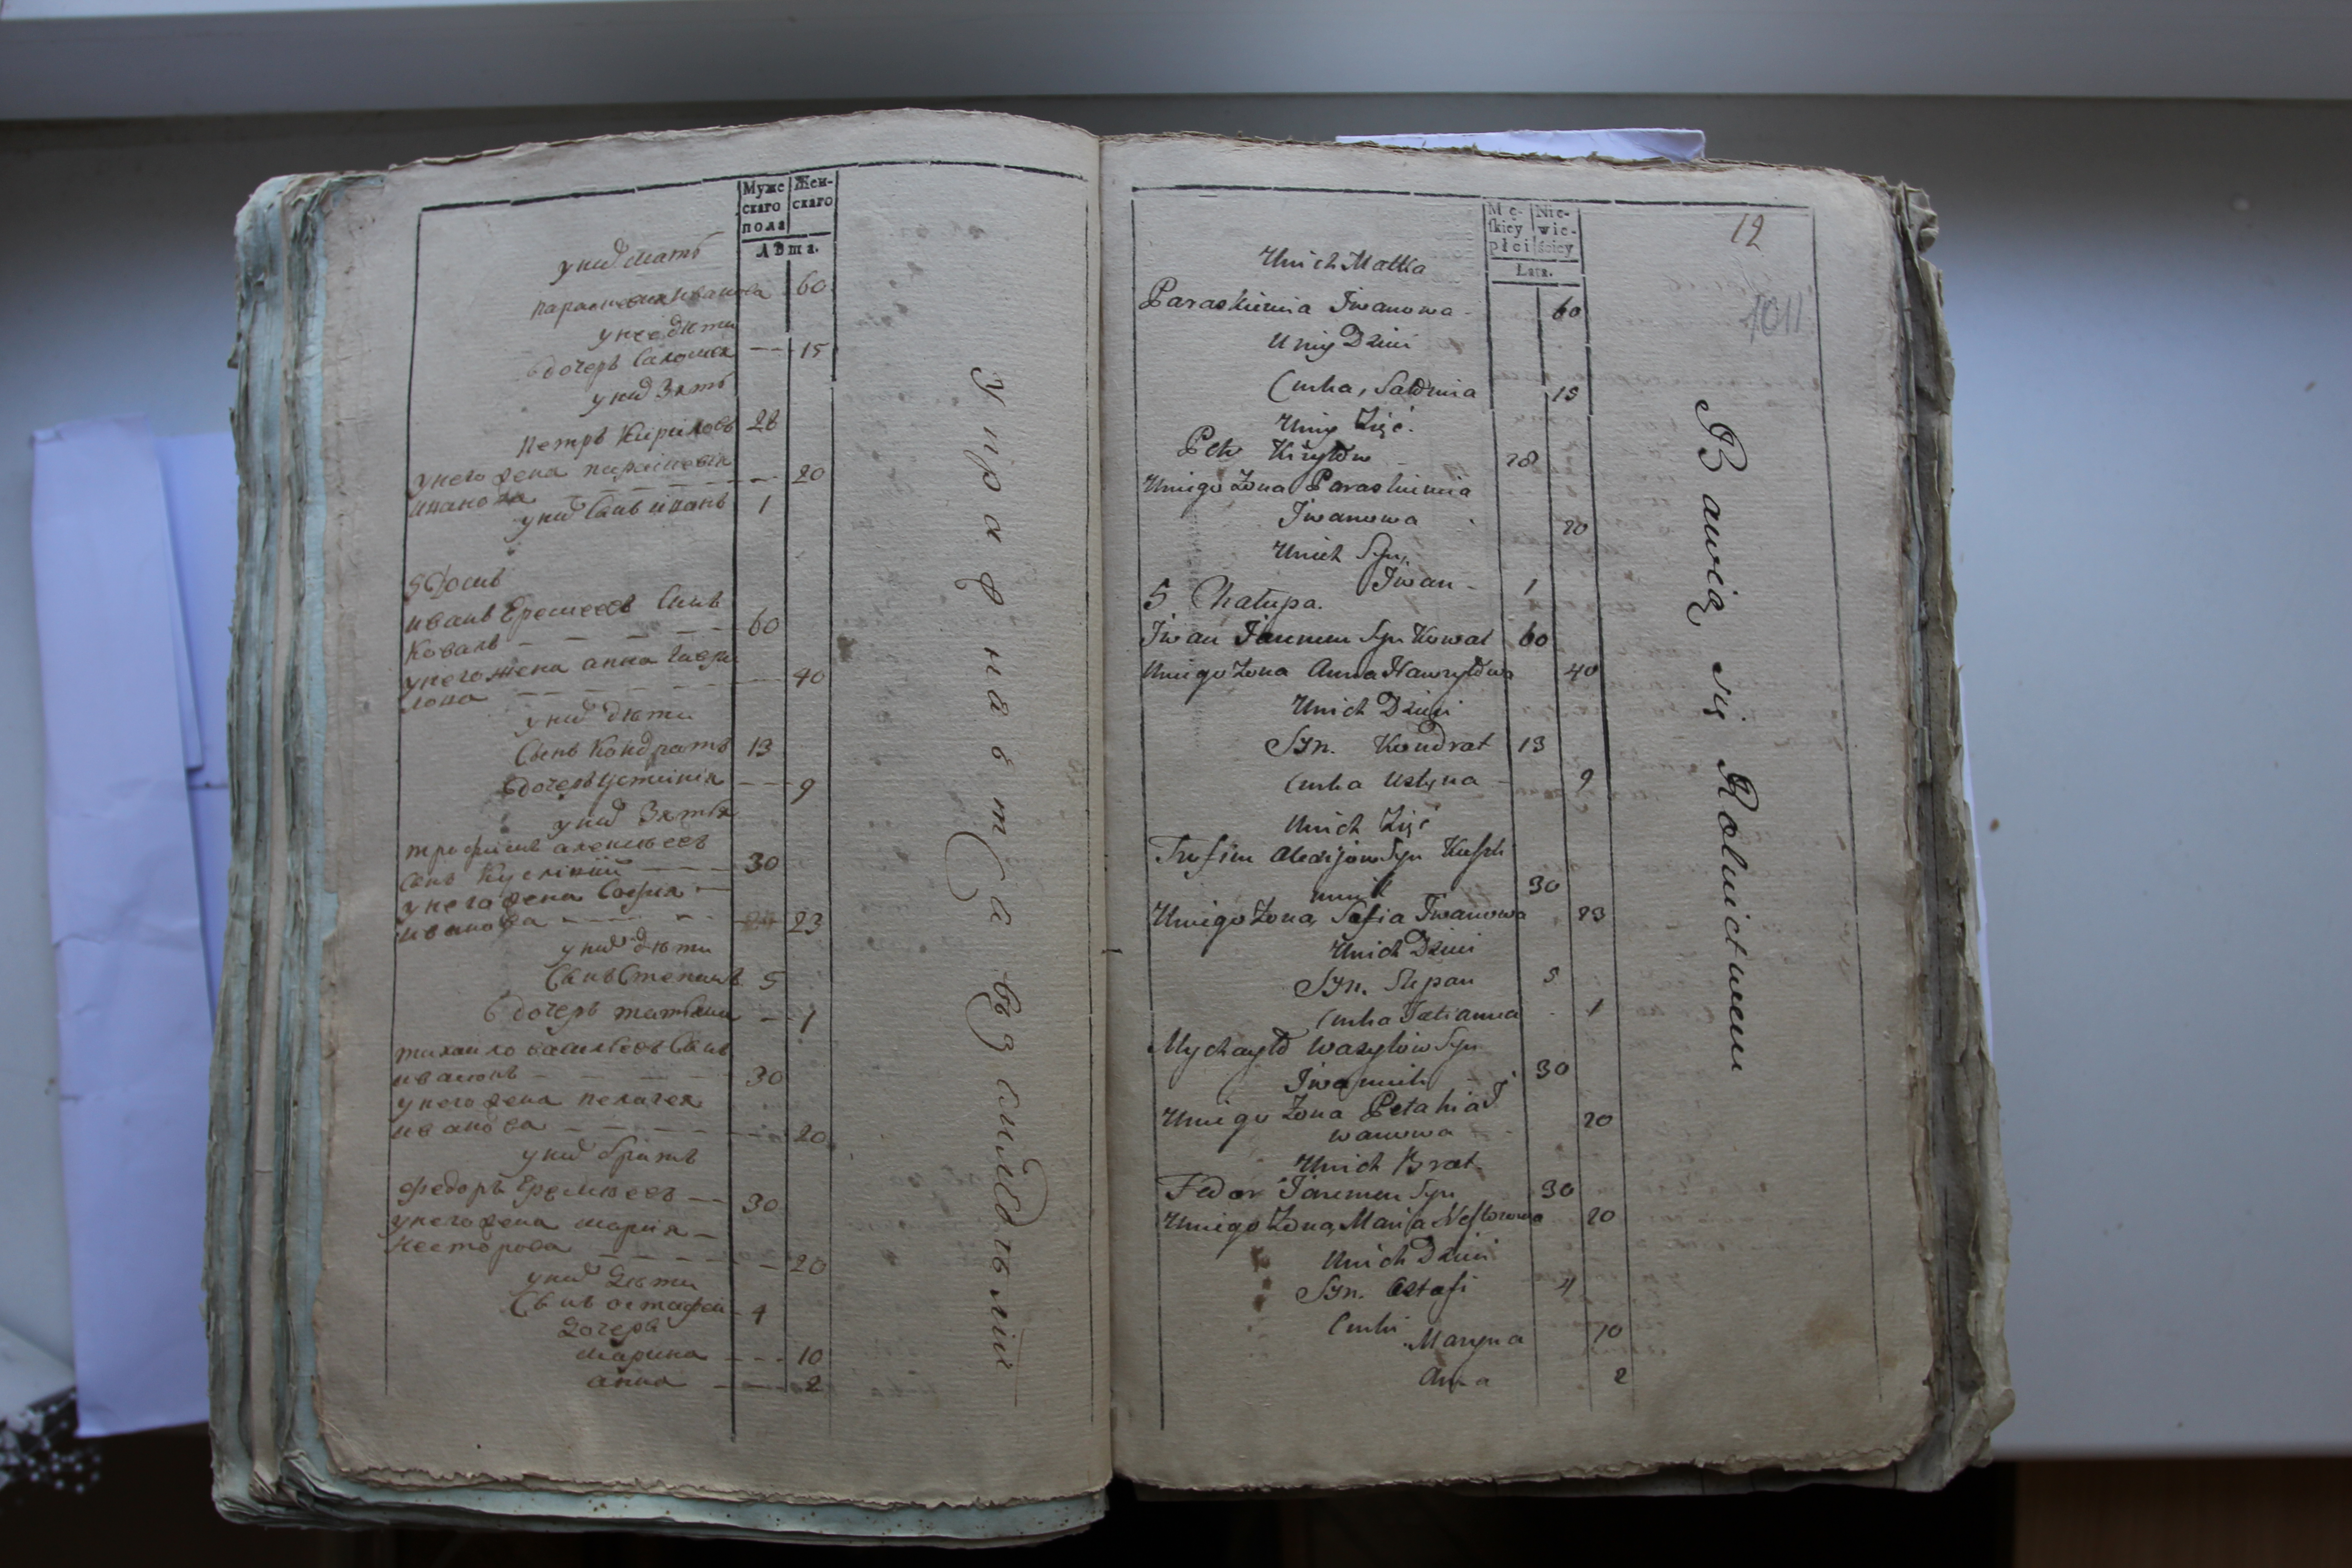 Муже
скаго
пола
Жен-
скаго
Лѣта.
у них мать
параскевия иванова 60
у нее дѣти
дочерь Саломея — 15
у них Зять
Петръ Кириловъ 28
у него жена параскевия
иванова — 20
у них Сынъ иванъ 1
5 Домъ
иванъ Еремеевъ Сынъ
Коваль — 60
у него жена анна гаври
лова — 40
у них дѣти
Сынъ Кондратъ 13
дочерь Устиния — 9
у них Зятья
трофимъ алексѣевъ
Сынъ — 30
у него жена София
иванова — 23
у них дѣти
Сынъ Степанъ 5
дочерь татияна — 1
михайло васильевъ Сынъ
— 30
у него жена пелагея
иванова — 20
у них братъ
Федоръ Еремѣевъ — 30
у него жена мария
Несторова — 20
у них Дѣти
Сынъ остафей 4
Дочери
марина — 10
анна — 2
Упражняютса в земледѣлии
Mę-
skiey
płci
Nie-
wie-
ściey
Lata.
12
1011
U nich Matka
Paraskiewia Iwanowa 60
U niey Dzieci
Curka, Sałomia 15
U niey Zięć.
Petr Kiryłow 28
U niego Zona Paraskiewia
Iwanowa 20
U nich Syn,
Iwan 1
5 Chałupa.
Iwan Jaremin Syn Kowal 60
U niego Zona Anna Hawryłowa 40
U nich Dzieci
Syn. Kondrat 13
Curka Ustyna 9
U nich Zięć
Trofim Alexijow Syn
30
U niego Zona, Sofia Iwanowa 23
U nich Dzieci
Syn. Stepan 5
Curka Tatianna 1
Mychayło Wasylow Syn
30
U niego Zona Petahia I
wanowa 20
U nich Brat
Fedor Jaremin Syn 30
U niego Zona, Maria Nestorowa 20
U nich Dzieci
Syn. Ostafi 4
Curki
Maryna 10
Anna 2
Bawią się Rolnictwem